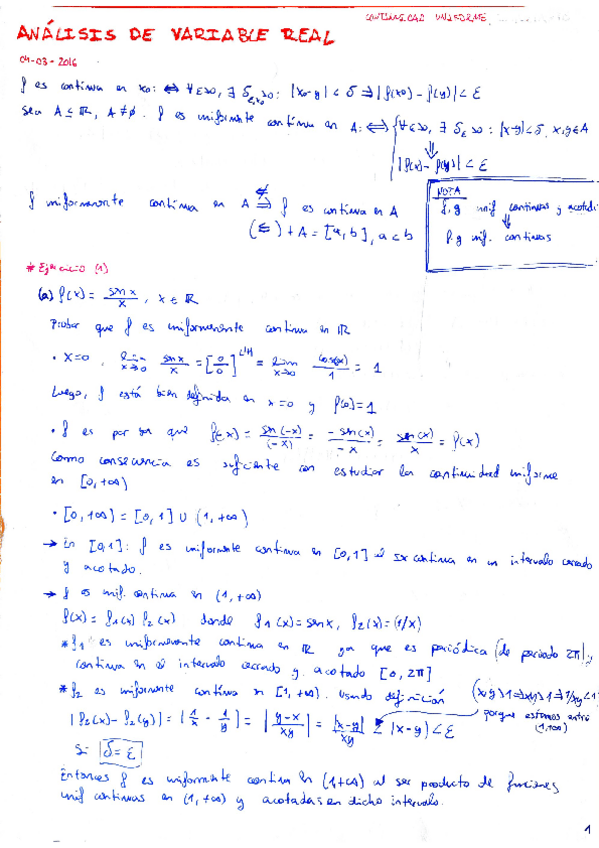 CONTINUIDAD UNIFORME
ANÁLISIS DE VARIABLE REAL
04-03-2016
f es continua en x₀: ⇔ ∀ε>0, ∃ δ_{ε,x₀}>0: |x₀-y|<δ ⇒ |f(x₀)-f(y)|<ε
Sea A⊆ℝ, A≠∅. f es uniformemente continua en A: ⇔ {∀ε>0, ∃ δ_ε>0: |x-y|<δ, x,y∈A
⇓
|f(x)-f(y)|<ε
NOTA
f, g unif. continuas y acotadas
⇓
f·g unif. continuas
f uniformemente continua en A ⇍ ⇒ f es continua en A
(⇐) + A = [a,b], a<b
* Ejercicio (1)
(a) f(x) = sen x / x, x ∈ ℝ
Probar que f es uniformemente continua en ℝ
• x=0, lim x→0 sen x / x = [0/0] L'H = lim x→0 cos(x) / 1 = 1
Luego, f está bien definida en x=0 y f(0)=1
• f es par ya que f(-x) = sen(-x)/(-x) = -sen(x)/-x = sen(x)/x = f(x)
Como consecuencia es suficiente con estudiar la continuidad uniforme
en [0,+∞)
• [0,+∞) = [0,1] ∪ (1,+∞)
→ En [0,1]: f es uniformemente continua en [0,1] al ser continua en un intervalo cerrado
y acotado.
→ f es unif. continua en (1,+∞)
f(x) = f₁(x) f₂(x) donde f₁(x) = sen x, f₂(x) = (1/x)
* f₁ es uniformemente continua en ℝ ya que es periódica (de periodo 2π) y
continua en el intervalo cerrado y acotado [0,2π]
* f₂ es uniformemente continua en [1,+∞). Usando definición (x,y>1 ⇒ xy>1 ⇒ 1/xy<1)
|f₂(x)-f₂(y)| = |1/x - 1/y| = |y-x / xy| = |x-y| / xy ≤ |x-y| < ε porque estamos entre (1,+∞)
Si δ=ε
Entonces f es uniformemente continua en (1,+∞) al ser producto de funciones
unif continuas en (1,+∞) y acotadas en dicho intervalo.
1